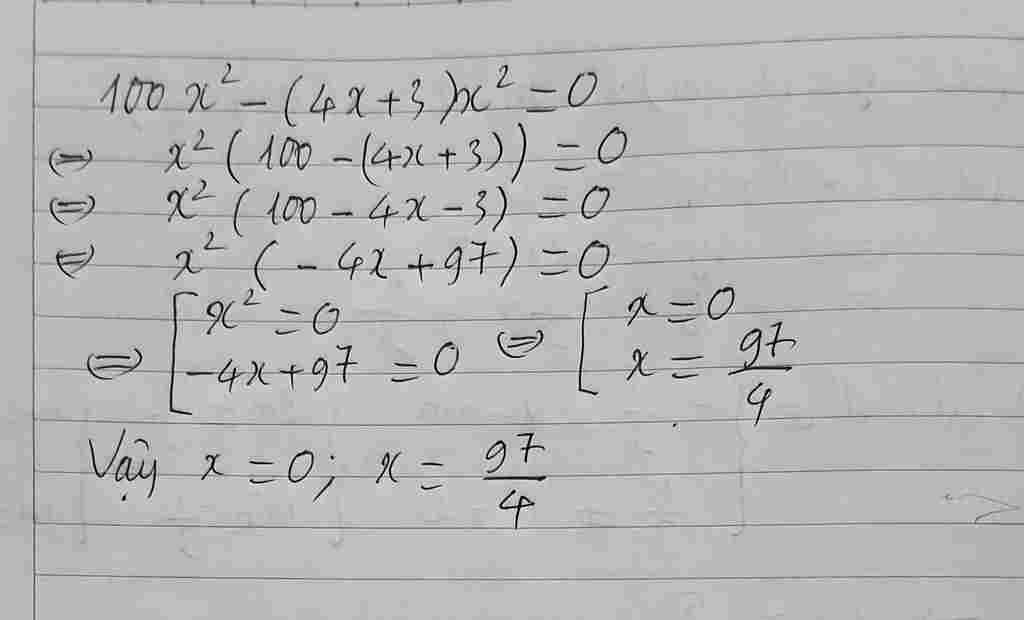 100x² - (4x+3)x² = 0
⇔ x² (100 - (4x+3)) = 0
⇔ x² (100 - 4x - 3) = 0
⇔ x² (-4x + 97) = 0
⇔ [ x² = 0 ⇔ [ x = 0
-4x + 97 = 0 x = 97/4
Vậy x = 0; x = 97/4